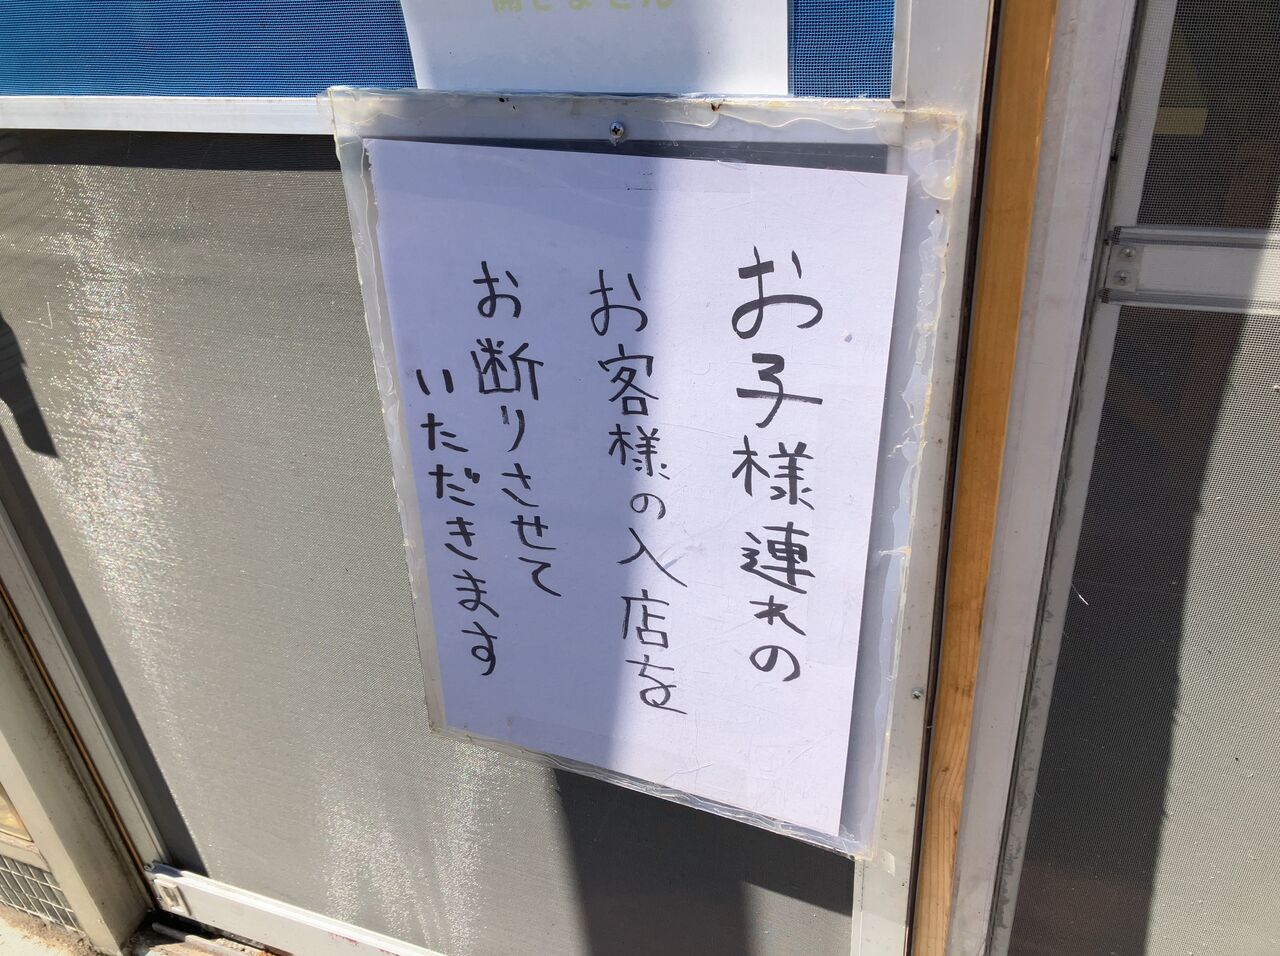 開きません
お子様連れの
お客様の入店を
お断りさせて
いただきます